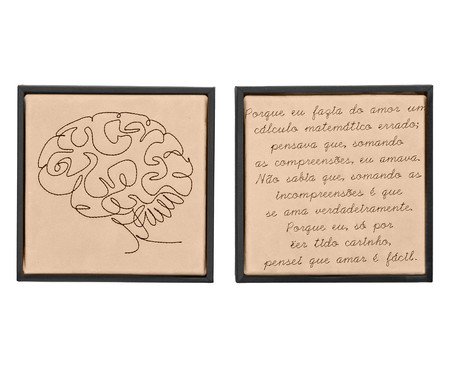 Porque eu fazia do amor um
cálculo matemático errado;
pensava que, somando
as compreensões, eu amava.
Não sabia que, somando as
incompreensões é que
se ama verdadeiramente.
Porque eu, só por
ter tido carinho,
pensei que amar é fácil.